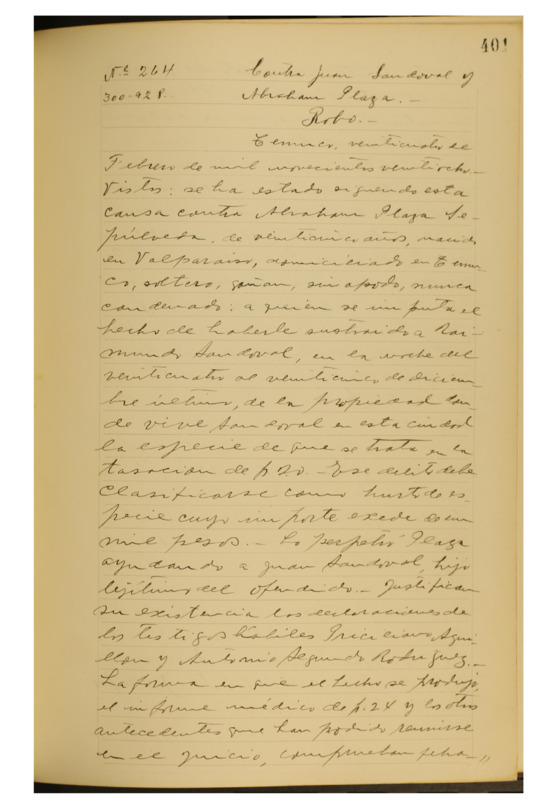 401
Nº 264 Contra Juan Sandoval y
300-928. Abraham Plaza.-
Robo.-
Temuco, veinticuatro de
Febrero de mil novecientos veintiocho.-
Vistos: se ha estado siguiendo esta
causa contra Abraham Plaza Se-
púlveda, de veinticinco años, nacido
en Valparaiso, domiciliado en Temu-
co, soltero, gañan, sin apodo, nunca
condenado: a quien se imputa el
hecho de haberle sustraido a Rai-
mundo Sandoval, en la noche del
veinticuatro al veinticinco de diciem-
bre último, de la propiedad don-
de vive Sandoval en esta ciudad
la especie de que se trata en la
tasación de p. 20.- Ese delito debe
clasificarse como hurto de es-
pecie cuyo importe excede de un
mil pesos.- Lo perpetró Plaza
ayudando a Juan Sandoval, hijo
legítimo del ofendido.- Justifican
su existencia las declaraciones de
los testigos hábiles
y Antonio Segundo Rodriguez.-
La forma en que el hecho se produjo,
el informe médico de p. 24 y los otros
antecedentes que han podido reunirse
en el juicio, comprueban